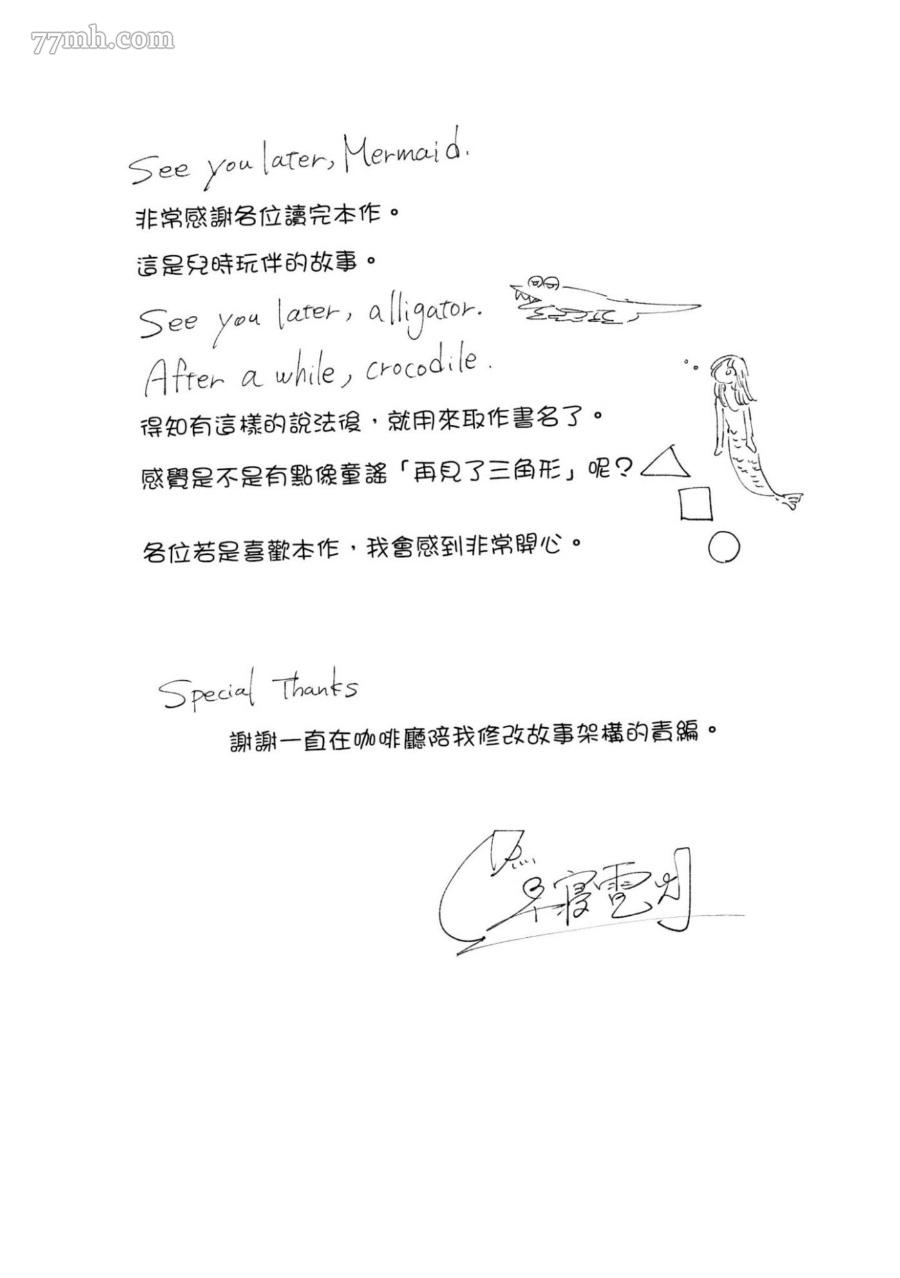 77mh.com
See you later, Mermaid.
非常感謝各位讀完本作。
這是兒時玩伴的故事。
See you later, alligator.
After a while, crocodile.
得知有這樣的說法後，就用來取作書名了。
感覺是不是有點像童謠「再見了三角形」呢？
各位若是喜歡本作，我會感到非常開心。
Special Thanks
謝謝一直在咖啡廳陪我修改故事架構的責編。
寝電灯